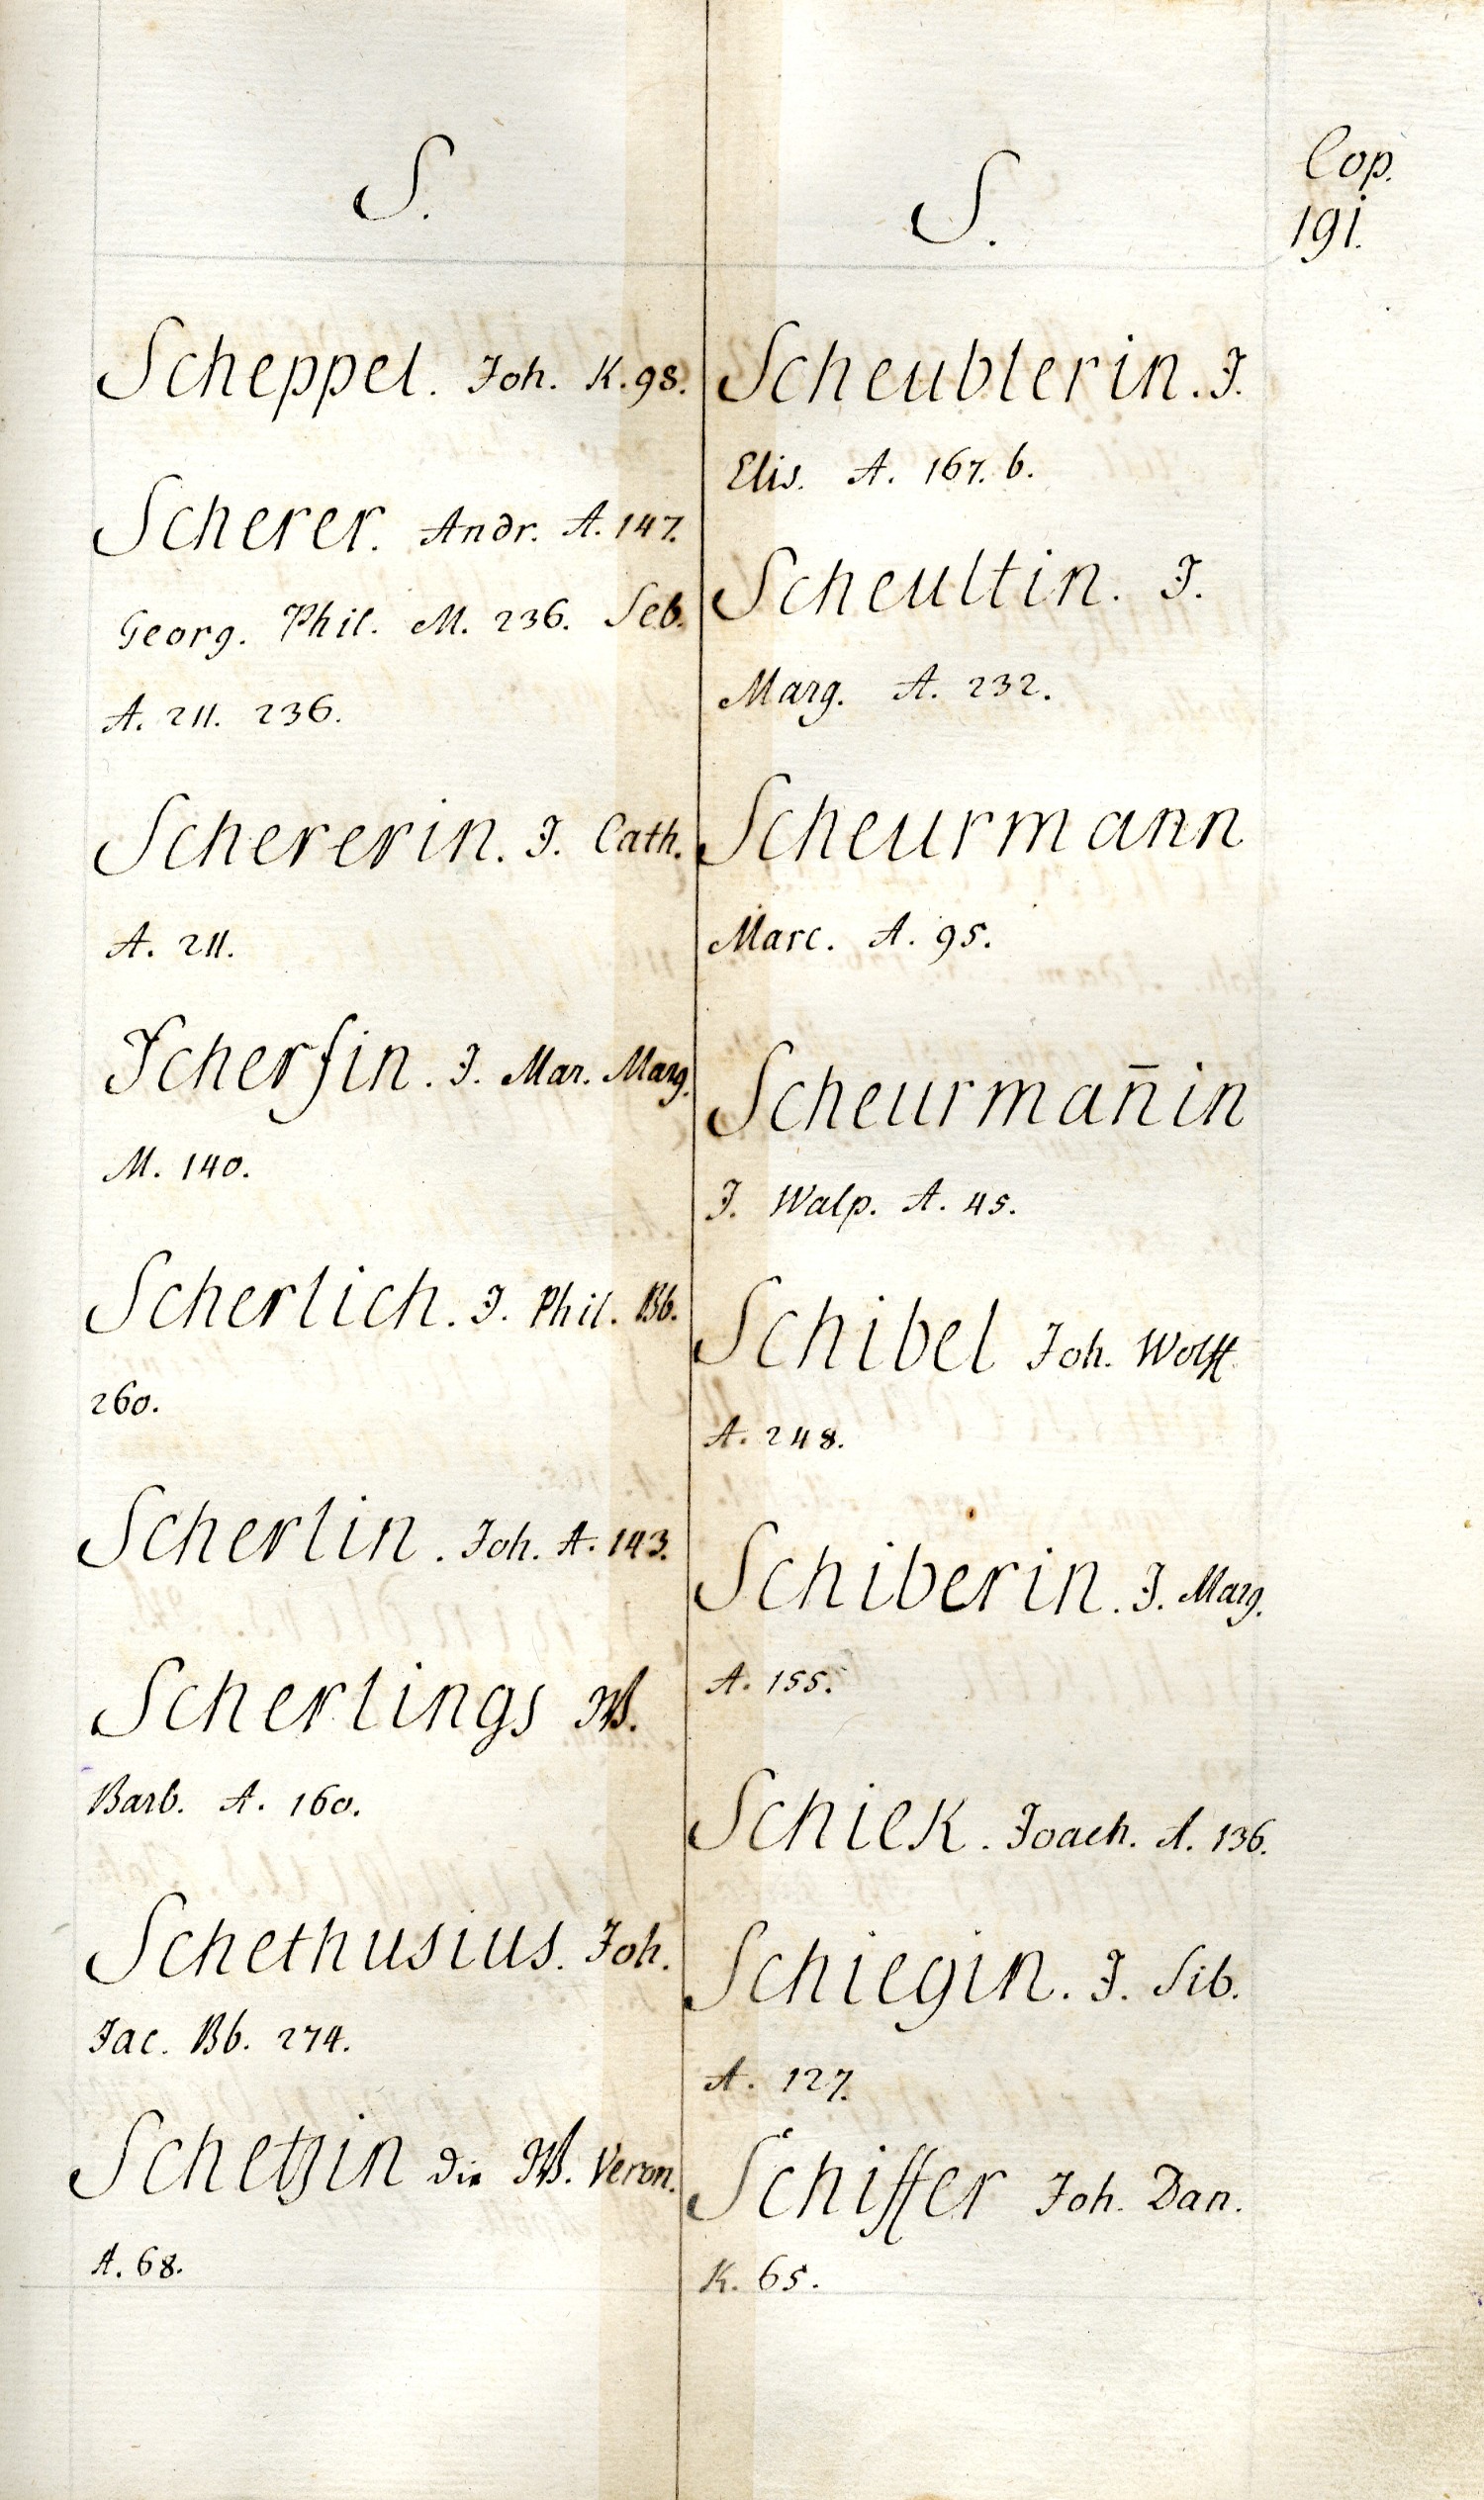 S.
Scheppel. Joh. K. 98.
Scherer. Andr. A. 147.
Georg. Phil. M. 236. Seb.
A. 211. 236.
Schererin. J. Cath.
A. 211.
Scherfin. J. Mar. Marg.
M. 140.
Scherlich. J. Phil. Bb.
260.
Scherlin. Joh. A. 143.
Scherlings W.
Barb. A. 160.
Schethusius. Joh.
Jac. Bb. 274.
Schetzin die W. Veron.
A. 68.
S.
Scheublerin. J.
Elis. A. 167. b.
Scheultin. J.
Marg. A. 232.
Scheurmann
Marc. A. 95.
Scheurmañin
J. Walp. A. 45.
Schibel Joh. Wolff
A. 248.
Schiberin. J. Marg.
A. 155.
Schiek. Joach. A. 136.
Schiegin. J. Sib.
A. 127.
Schiffer Joh. Dan.
K. 65.
Cop.
191.